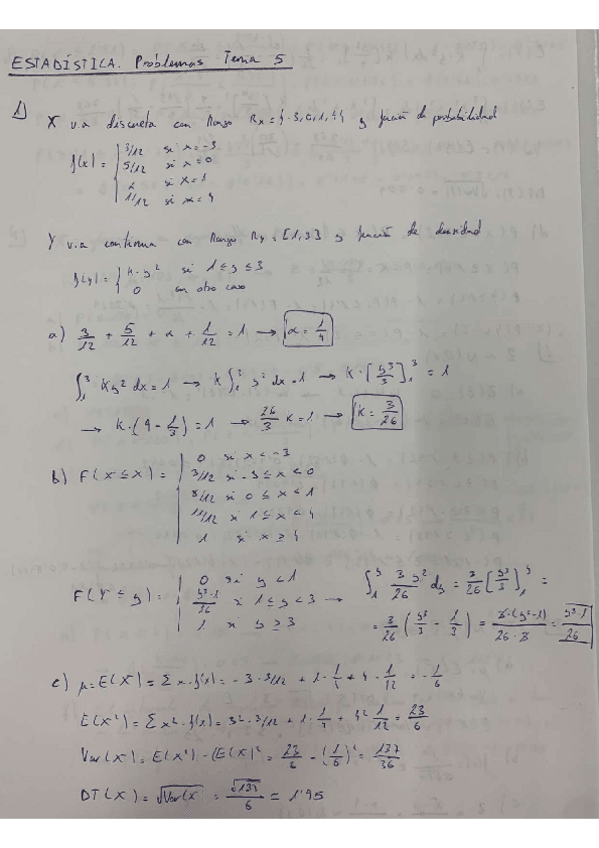 ESTADÍSTICA. Problemas Tema 5
1) X v.a discreta con Rango Rx = {-3,0,1,4} y función de probabilidad
f(x) = { 3/12 si x=-3
5/12 si x=0
α si x=1
1/12 si x=4
Y v.a continua con Rango Ry = [1,3] y función de densidad
f(y) = { k·y² si 1≤y≤3
0 en otro caso
a) 3/12 + 5/12 + α + 1/12 = 1 → α = 1/4
∫₁³ ky² dx = 1 → k ∫₁³ y² dx = 1 → k·[y³/3]₁³ = 1
→ k·(9 - 1/3) = 1 → 26/3 k = 1 → k = 3/26
b) F(X≤x) = { 0 si x<-3
3/12 si -3≤x<0
8/12 si 0≤x<1
11/12 si 1≤x<4
1 si x≥4
F(Y≤y) = { 0 si y<1
y³-1/26 si 1≤y<3 →
1 si y≥3
∫₁ʸ 3/26 y² dy = 3/26 [y³/3]₁ʸ =
= 3/26 (y³/3 - 1/3) = 3·(y³-1)/26·3 = y³-1/26
c) μ = E(X) = Σ x·f(x) = -3·3/12 + 1·1/4 + 4·1/12 = -1/6
E(X²) = Σ x²·f(x) = 3²·3/12 + 1·1/4 + 4² 1/12 = 23/6
Var(X) = E(X²) - (E(X)² = 23/6 - (1/6)² = 137/36
DT(X) = √Var(X = √137/6 = 1'95